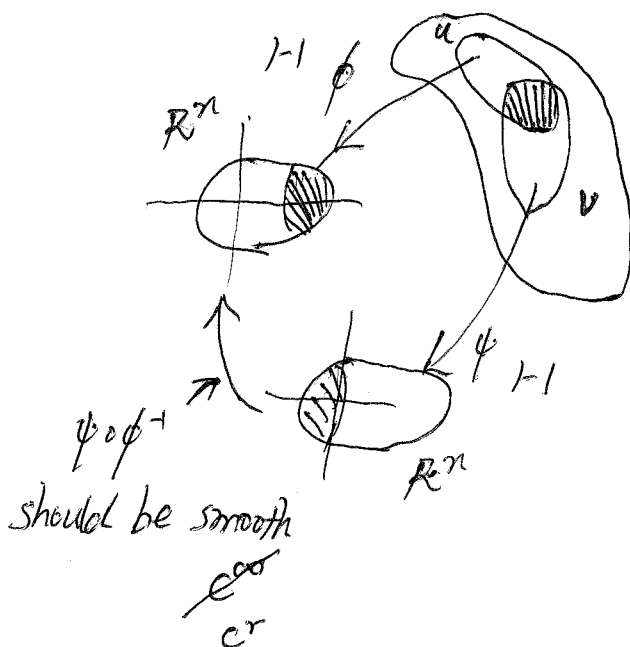 u
1-1 φ
R^n
v
ψ 1-1
R^n
ψ∘φ^-1
should be smooth
c^∞
c^r